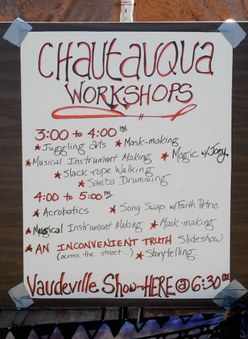 CHAUTAUQUA
WORKSHOPS
3:00 to 4:00 PM
★ Juggling arts ★ Mask-making
★ Musical Instrument Making ★ Magic w/ Jony
★ Slack-rope Walking
★ Samba Drumming
4:00 to 5:00 PM
★ Acrobatics ★ Song Swap w/ Faith Petric
★ Musical Instrument Making ★ Mask-making
★ AN INCONVENIENT TRUTH Slideshow
(across the street...) ★ Storytelling
Vaudeville Show-HERE @ 6:30